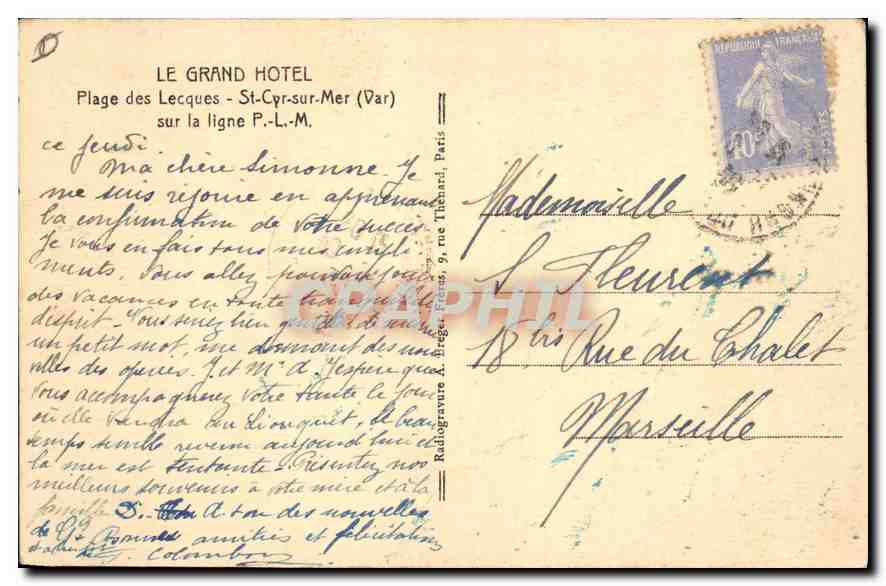 LE GRAND HOTEL
Plage des Lecques - St-Cyr-sur-Mer (Var)
sur la ligne P.-L.-M.
ce jeudi
Ma chère Simonne. Je
me suis réjouie en apprenant
la confirmation de votre succès.
Je vous en fais tous mes compli-
ments, vous allez pouvoir jouir
des vacances en toute tranquillité
d'esprit - Vous seriez bien gentille de m'écrire
un petit mot, me donnant des nou
velles des
J'espère que
vous accompagnerez votre tante le jour
où elle viendra au Liouquet, le beau
temps semble revenu aujourd'hui et
la mer est tentante - Présentez nos
meilleurs souvenirs à votre mère et à la
famille D. a-t-on des nouvelles
de
amitiés et félicitations
Colombon
Radiogravure A. Breger Frères, 9, rue Thénard, Paris
REPUBLIQUE FRANÇAISE
40
POSTES
Mademoiselle
S. Fleurent
18 bis Rue du Chalet
Marseille
CPAPHIL